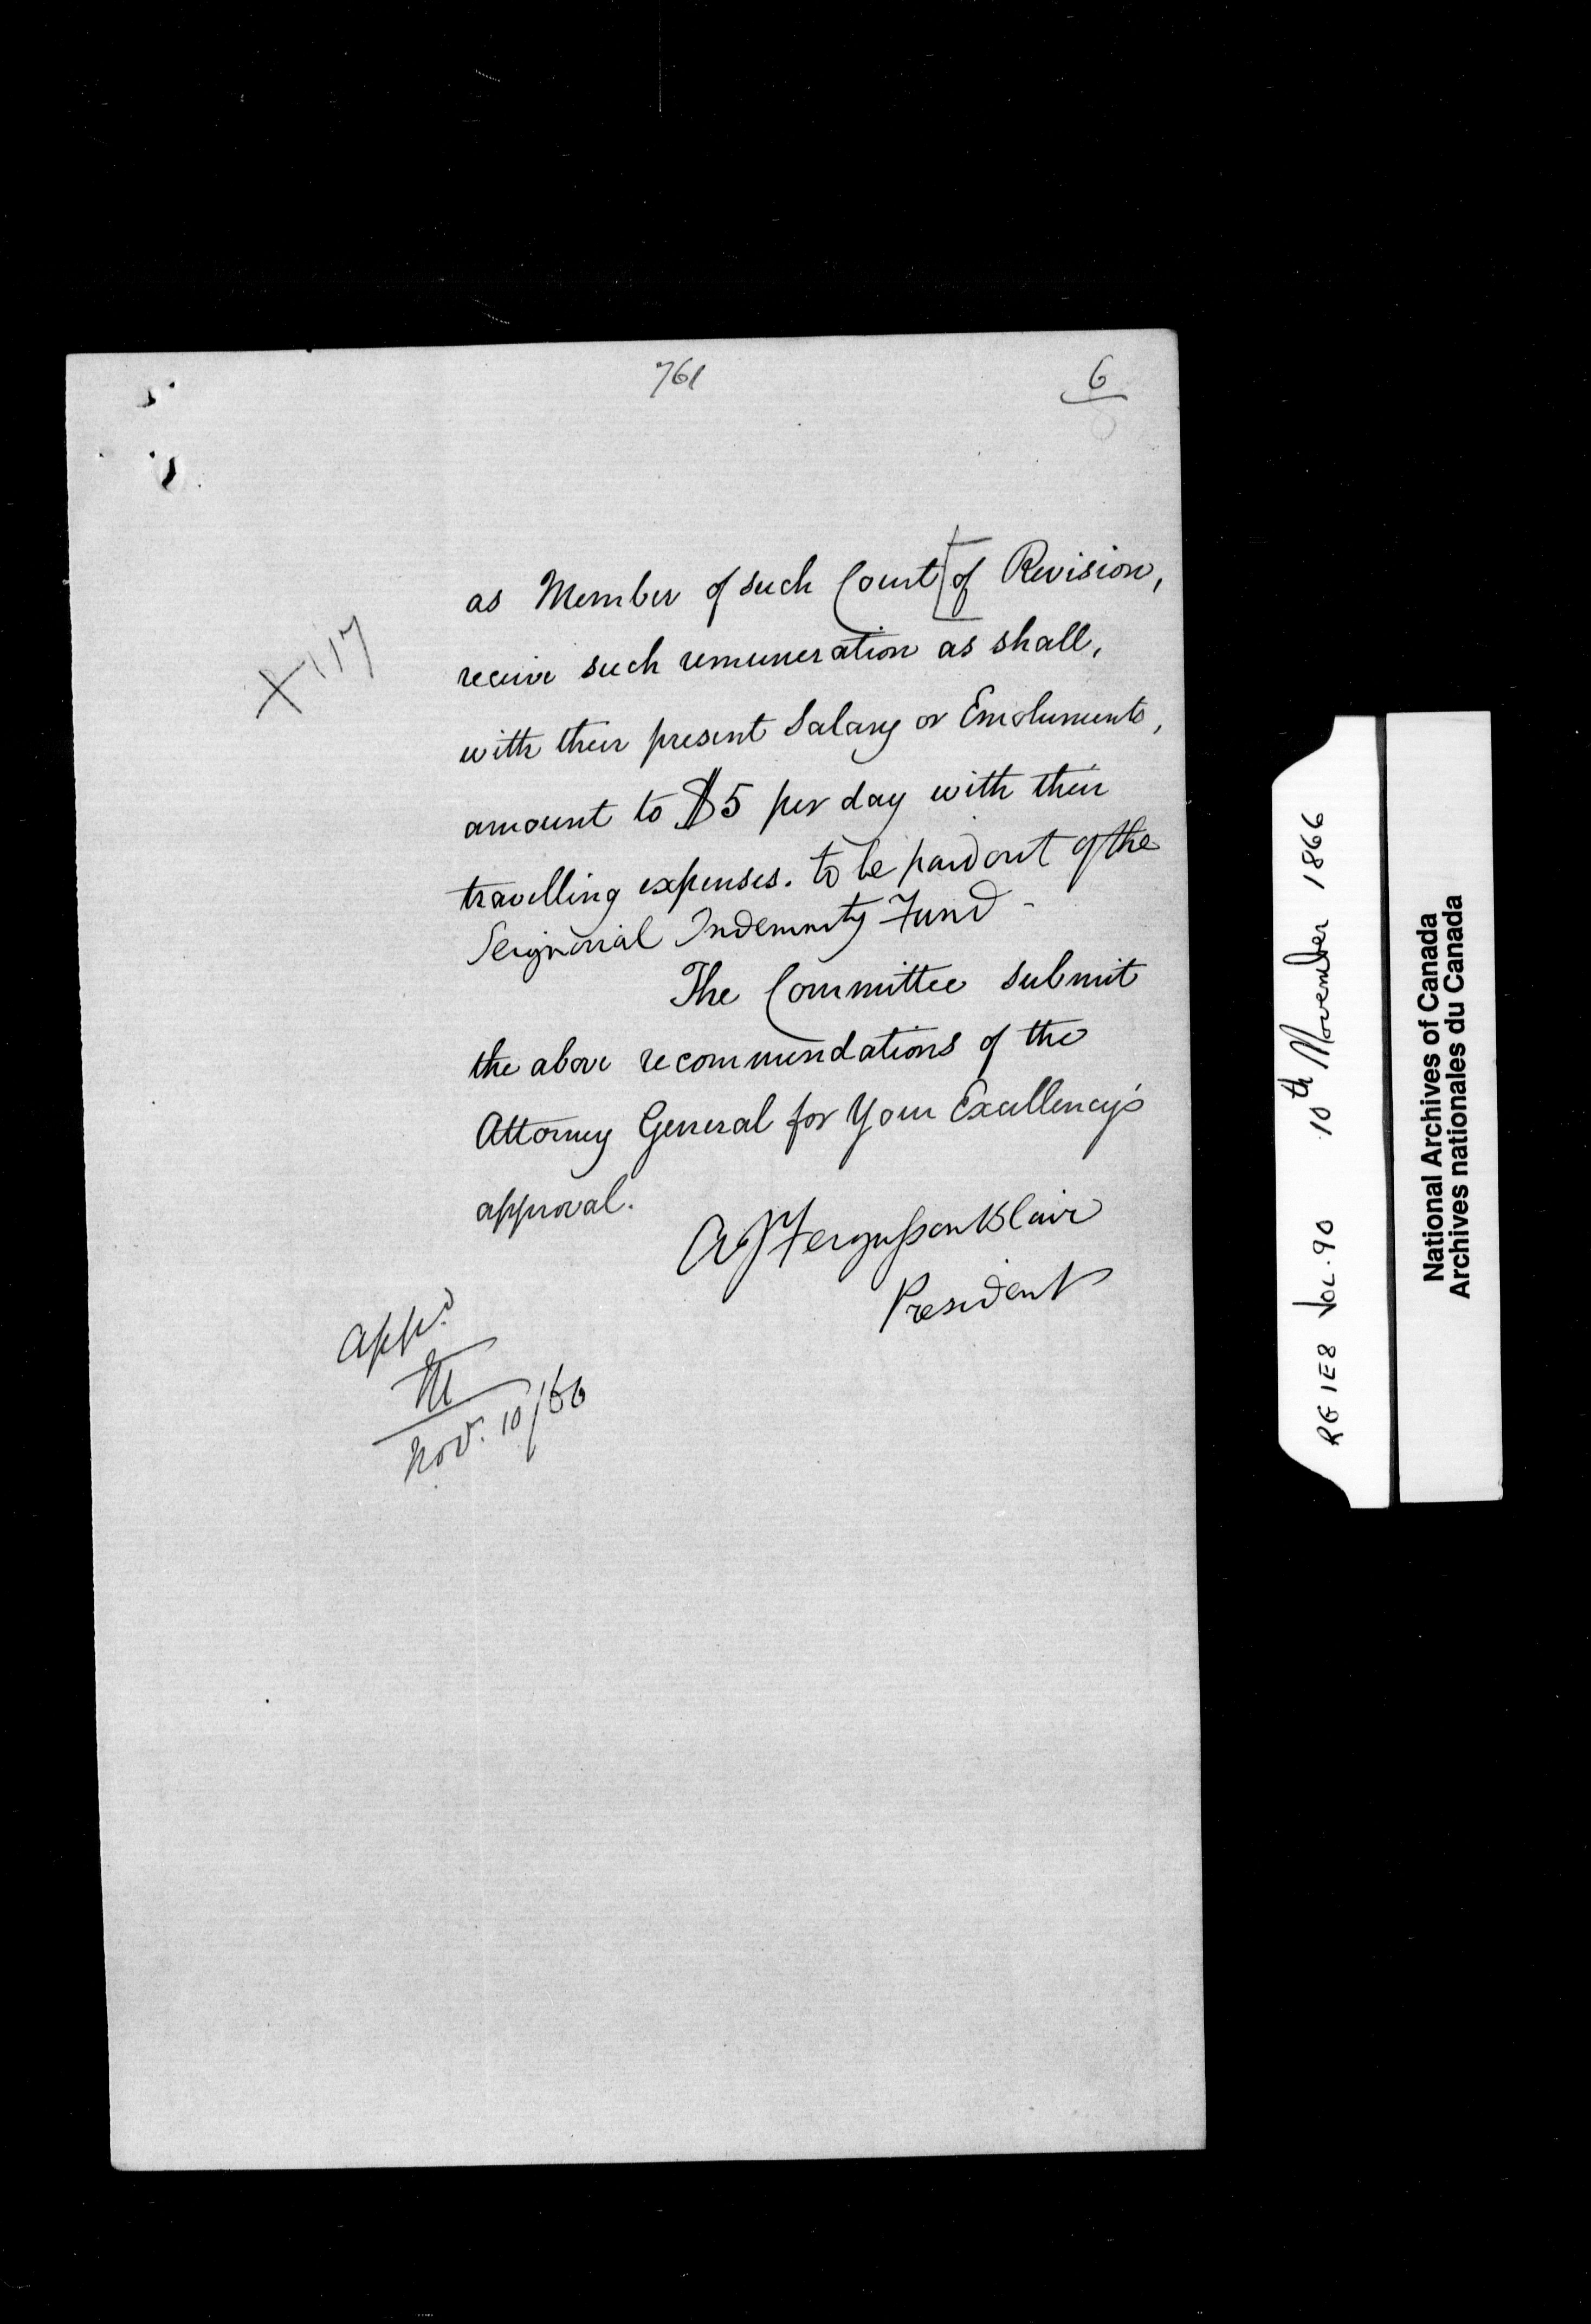 761
6
X 117
as Member of such Court of Revision,
receive such remuneration as shall,
with their present Salary or Emoluments,
amount to $5 per day with their
travelling expenses. to be paid out of the
Seignorial Indemnity Fund -
The Committee submit
the above recommendations of the
Attorney General for Your Excellency's
approval.
A J Fergusson Blair
President
appd
M
Nov. 10/66
RG 1E8 VOL. 90 10th November 1866
National Archives of Canada
Archives nationales du Canada